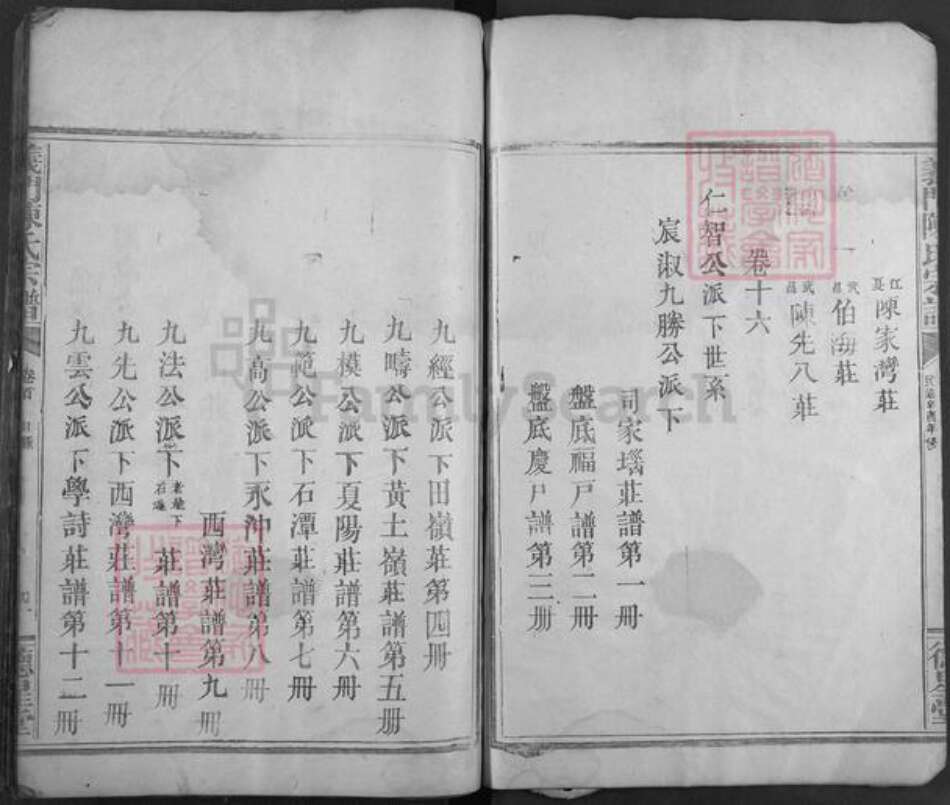 江夏陳家灣莊
武昌伯海莊
武昌陳先八莊
卷十六
仁智公派下世系
宸淑九勝公派下
司家塆莊譜第一冊
盤底福戸譜第二冊
盤底慶戸譜第三册
九經公派下田嶺莊第四冊
九疇公派下黃土嶺莊譜第五册
九模公派下夏陽莊譜第六冊
九範公派下石潭莊譜第七冊
九高公派下永沖莊譜第八冊
西灣莊譜第九冊
九法公派下 莊譜第十冊
九先公派下西灣莊譜第十一冊
九雲公派下學詩莊譜第十二冊
義門陳氏宗譜
卷首
FamilySearch